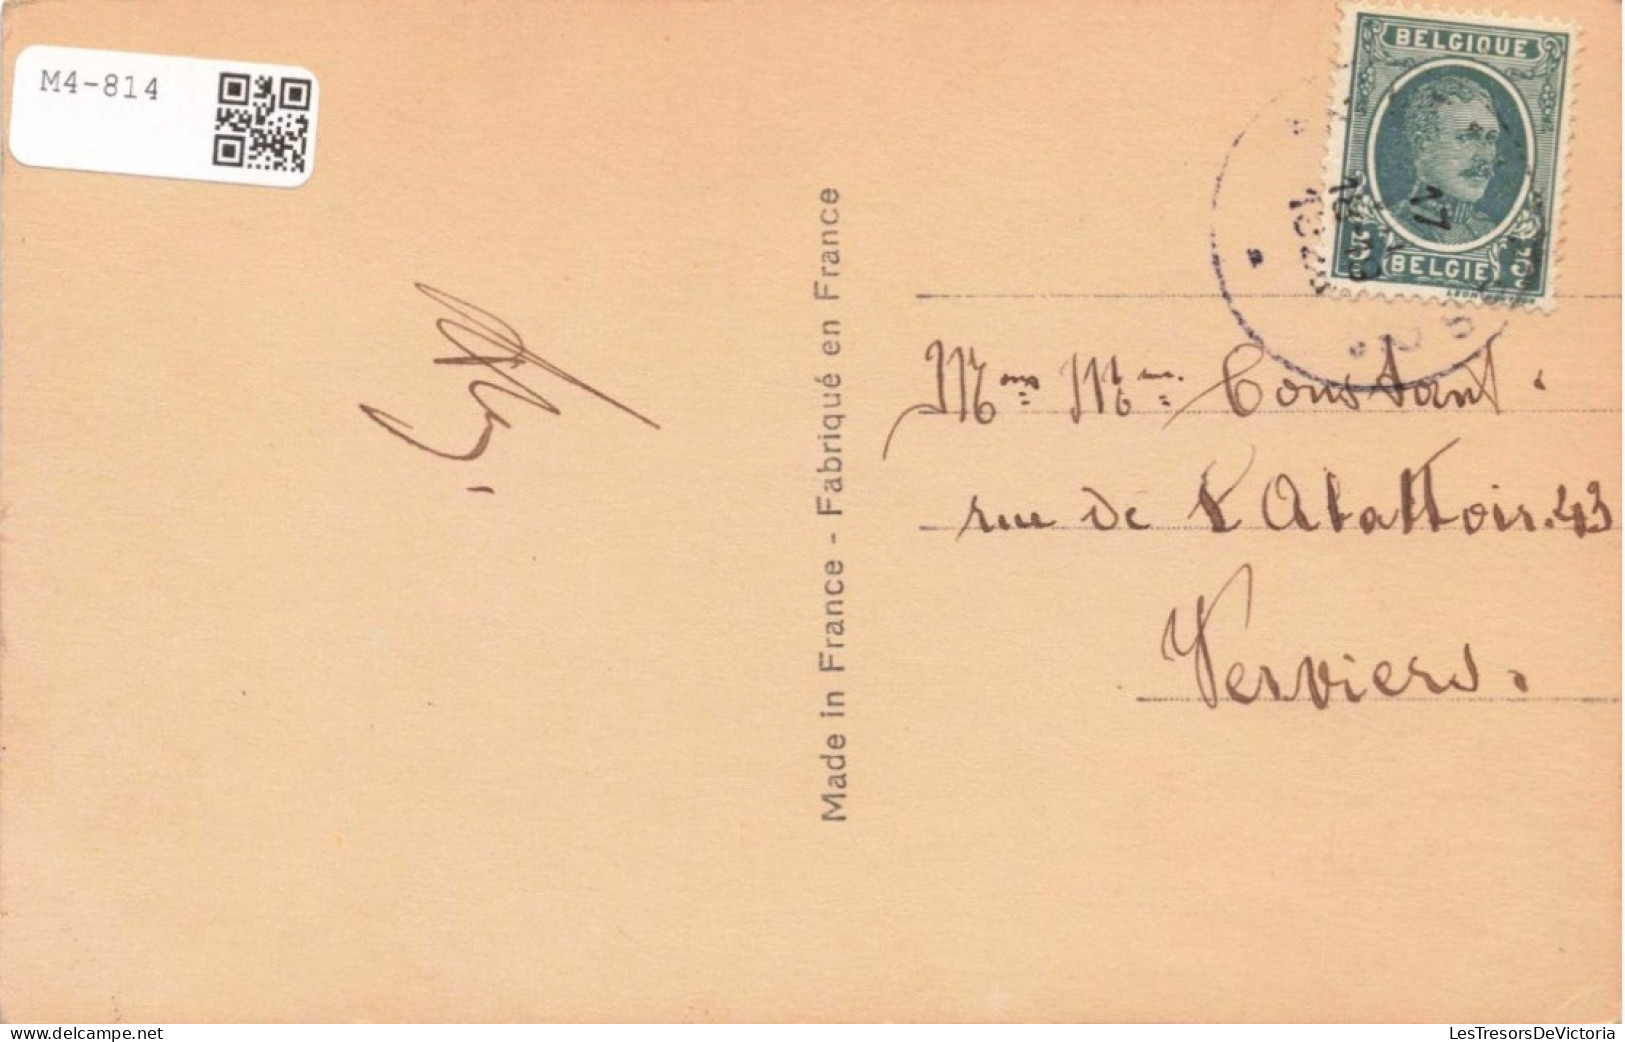 M4-814
BELGIQUE
5 BELGIE 5
17
Made in France - Fabriqué en France
Mons Mme Constant.
rue de L'Abattoir. 43
Verviers.
LesTresorsDeVictoria